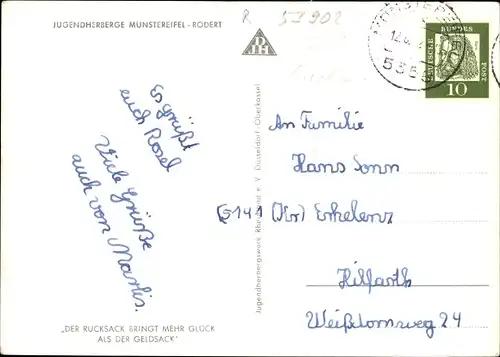 JUGENDHERBERGE MÜNSTEREIFEL - RODERT
R 53902
DJH
DEUTSCHE BUNDES POST
10
Es grüßt
euch Rosel
Viele Grüße
auch von Marlis.
An Familie
Hans Sonn
(5141) (Kr) Erkelenz
Hilfarth
Weißdornweg 24
Jugendherbergswerk Rheinland e. V. Düsseldorf-Oberkassel
„DER RUCKSACK BRINGT MEHR GLÜCK
ALS DER GELDSACK"